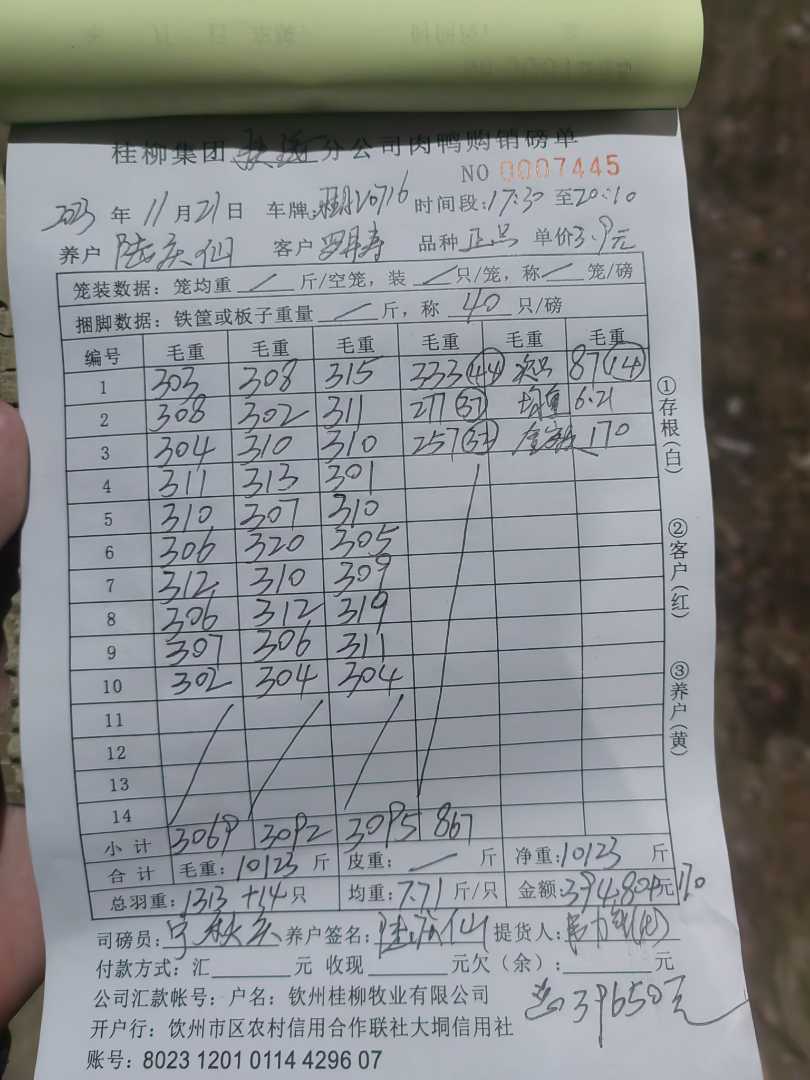 桂柳集团 钦琼 分公司肉鸭购销磅单
NO 0007445
2023 年 11 月 21 日 车牌: 20716 时间段:17:30 至20:10
养户 陆庆仙 客户 品种 正品 单价3.9元
笼装数据：笼均重 / 斤/空笼，装 / 只/笼，称 / 笼/磅
捆脚数据：铁筐或板子重量 / 斤，称 40 只/磅
编号 毛重 毛重 毛重 毛重 毛重 毛重
1 303 308 315 333 (44) 次品 87 (14)
2 308 302 311 277 均重 6.21
3 304 310 310 257 金额 170
4 311 313 301
5 310 307 310
6 306 320 305
7 312 310 309
8 306 312 319
9 307 306 311
10 302 304 304
11
12
13
14
小计 3069 3092 3095 867
合计 毛重：10123 斤 皮重： / 斤 净重：10123 斤
总羽重：1313 +14 只 均重：7.71 斤/只 金额:39480元 170
司磅员： 养户签名： 提货人：
付款方式：汇 元 收现 元欠（余）： 元
公司汇款帐号：户名：钦州桂柳牧业有限公司
总39650元
开户行：饮州市区农村信用合作联社大垌信用社
账号：8023 1201 0114 4296 07
①存根(白)
②客户(红)
③养户(黄)